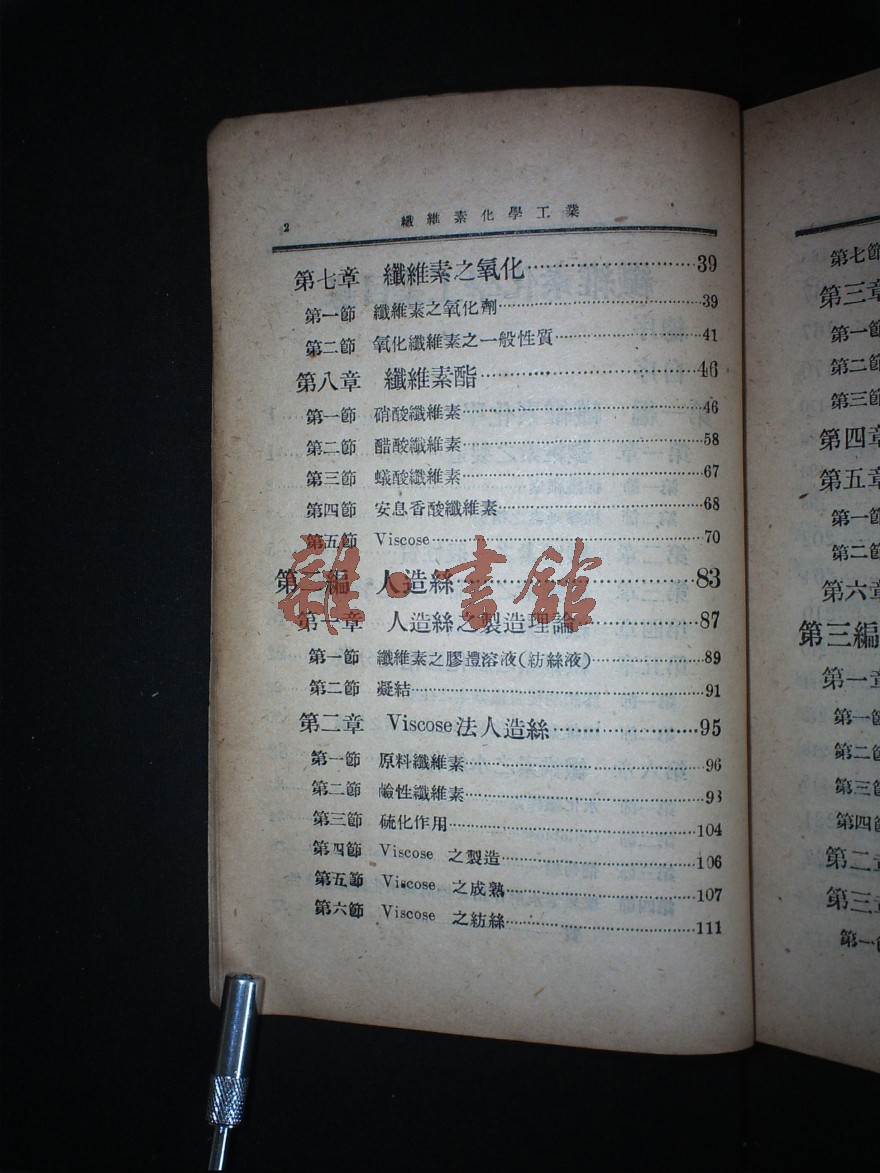 2 纖維素化學工業
第七章 纖維素之氧化……39
第一節 纖維素之氧化劑……39
第二節 氧化纖維素之一般性質……41
第八章 纖維素酯……46
第一節 硝酸纖維素……46
第二節 醋酸纖維素……58
第三節 蟻酸纖維素……67
第四節 安息香酸纖維素……68
第五節 Viscose……70
第二編 人造絲……83
第一章 人造絲之製造理論……87
第一節 纖維素之膠體溶液(紡絲液)……89
第二節 凝結……91
第二章 Viscose法人造絲……95
第一節 原料纖維素……96
第二節 鹼性纖維素……98
第三節 硫化作用……104
第四節 Viscose 之製造……106
第五節 Viscose 之成熟……107
第六節 Viscose 之紡絲……111
雜·書館
第七節
第三章
第一節
第二節
第三節
第四章
第五章
第一節
第二節
第六章
第三編
第一章
第一節
第二節
第三節
第四節
第二章
第三章
第一節